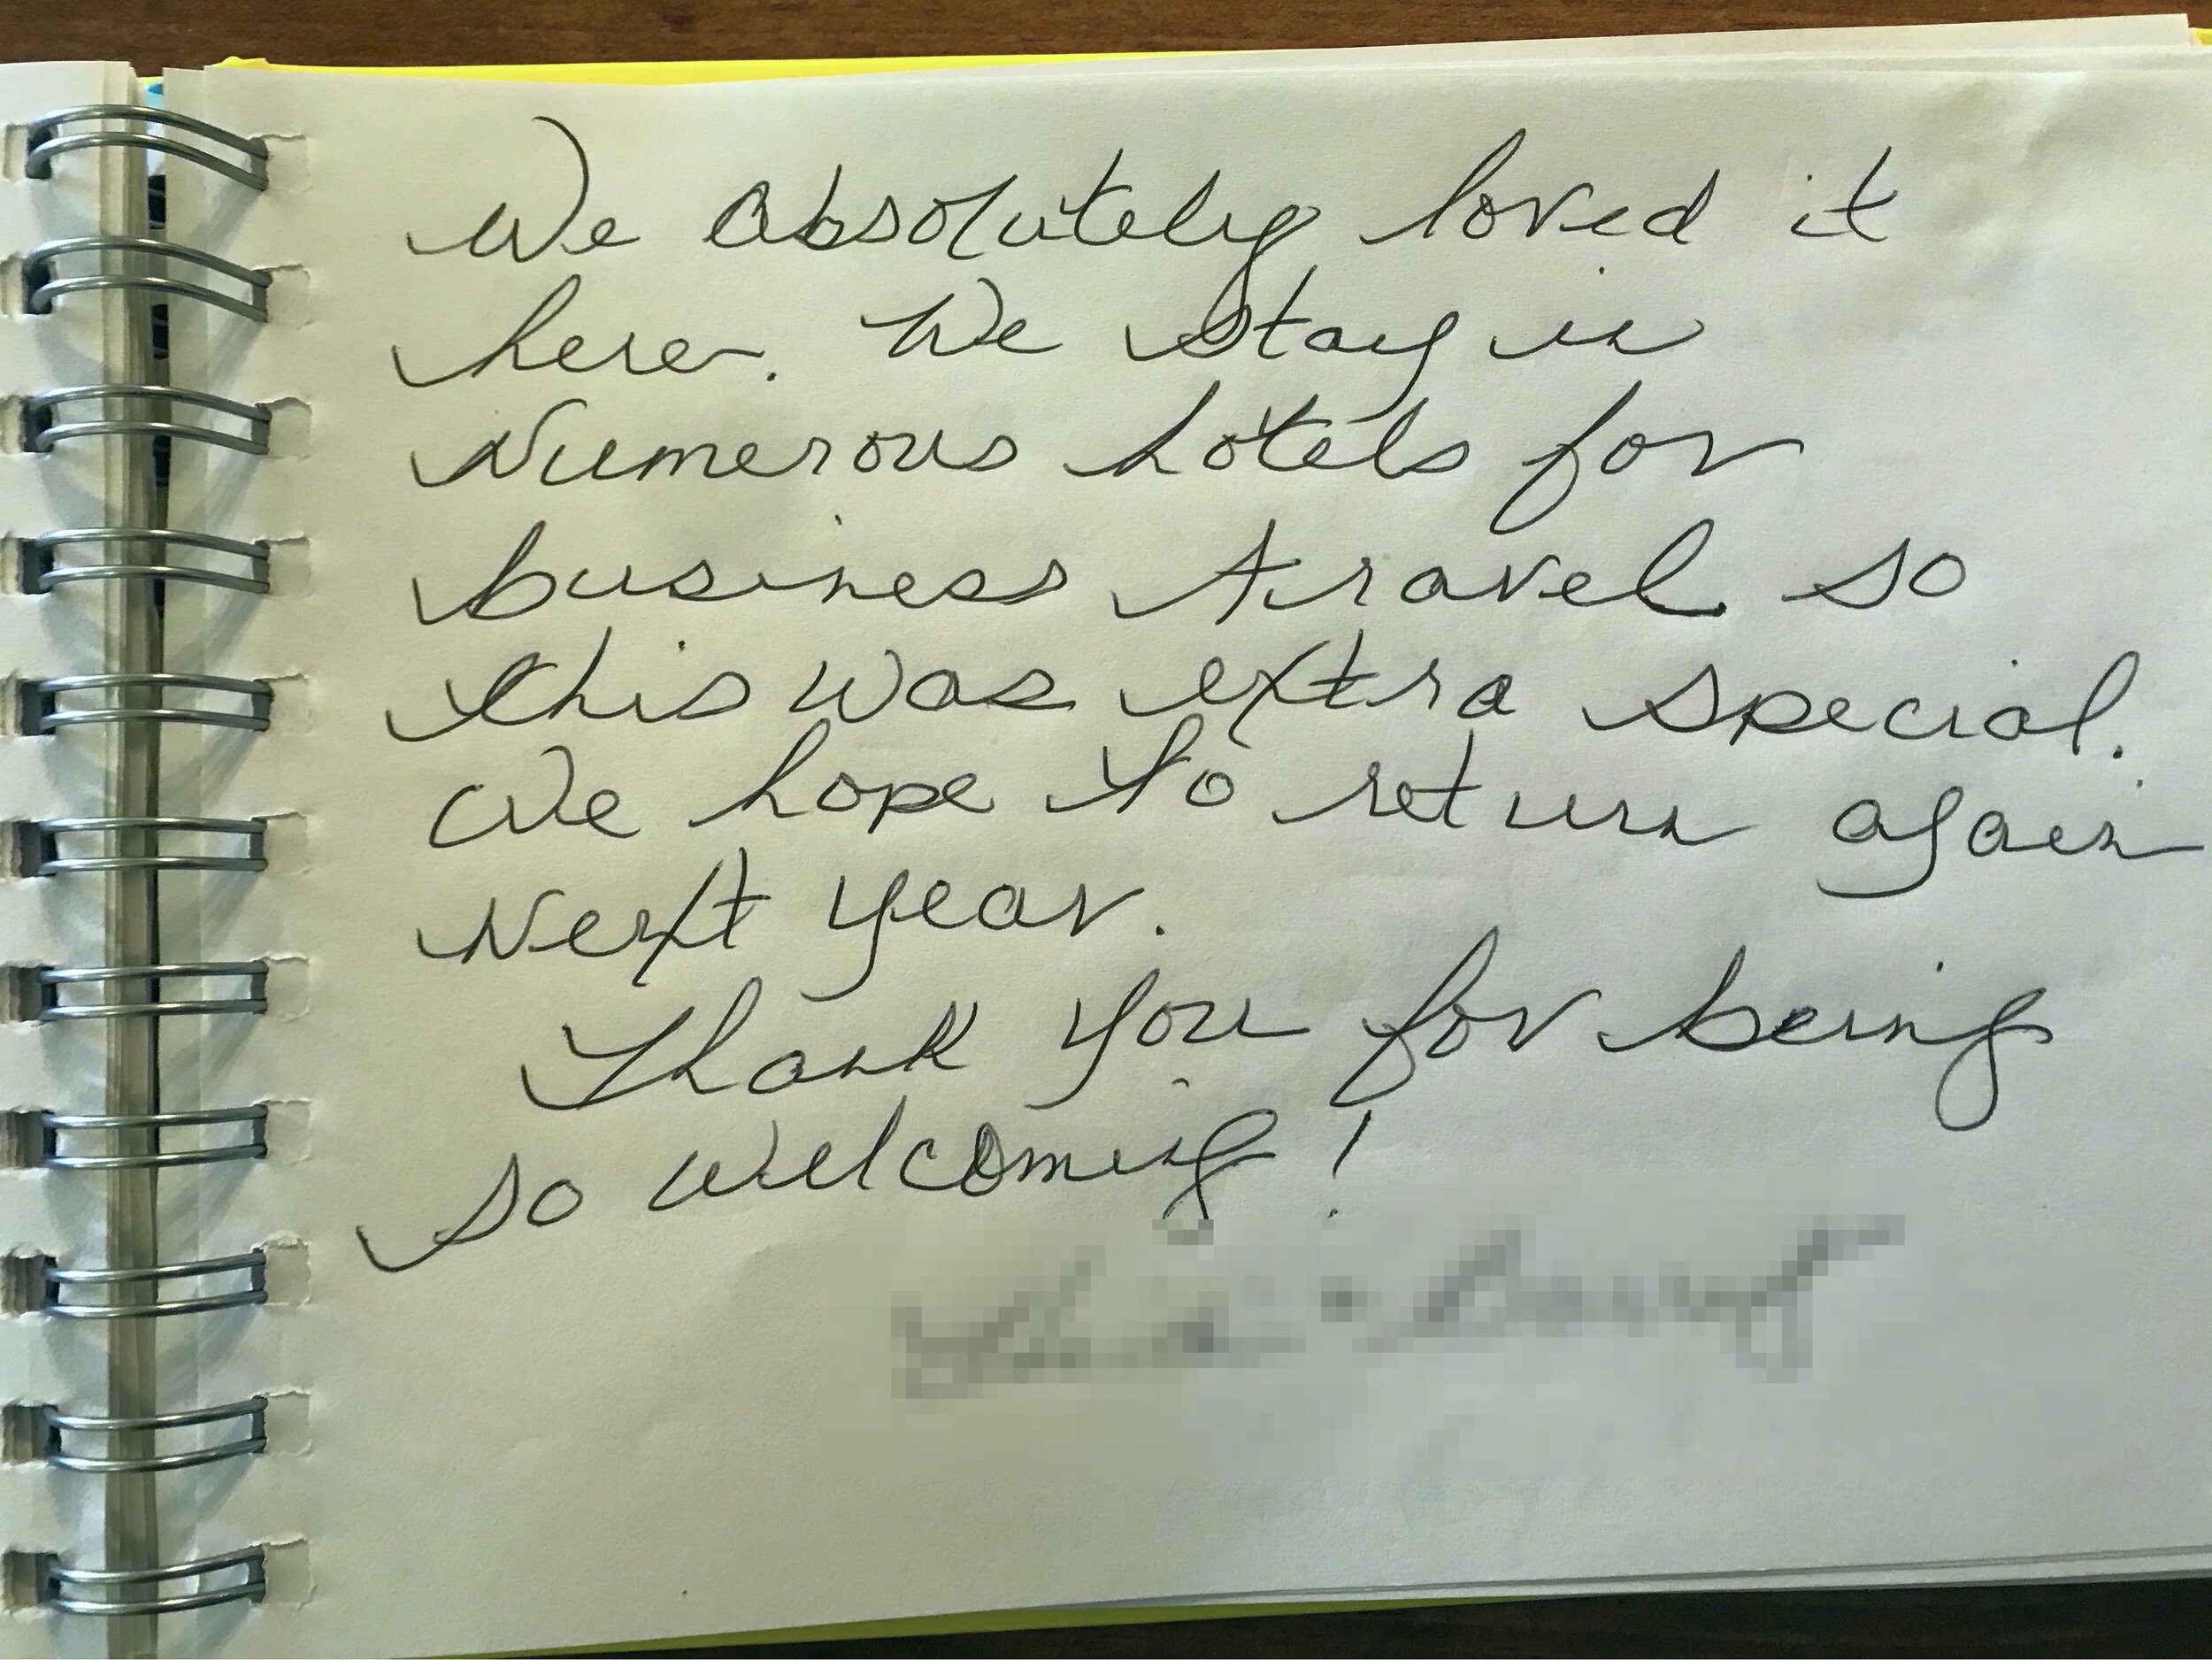 We absolutely loved it
here. We stay in
Numerous hotels for
business travel so
this was extra special.
We hope to return again
Next year.
Thank you for being
so welcoming!